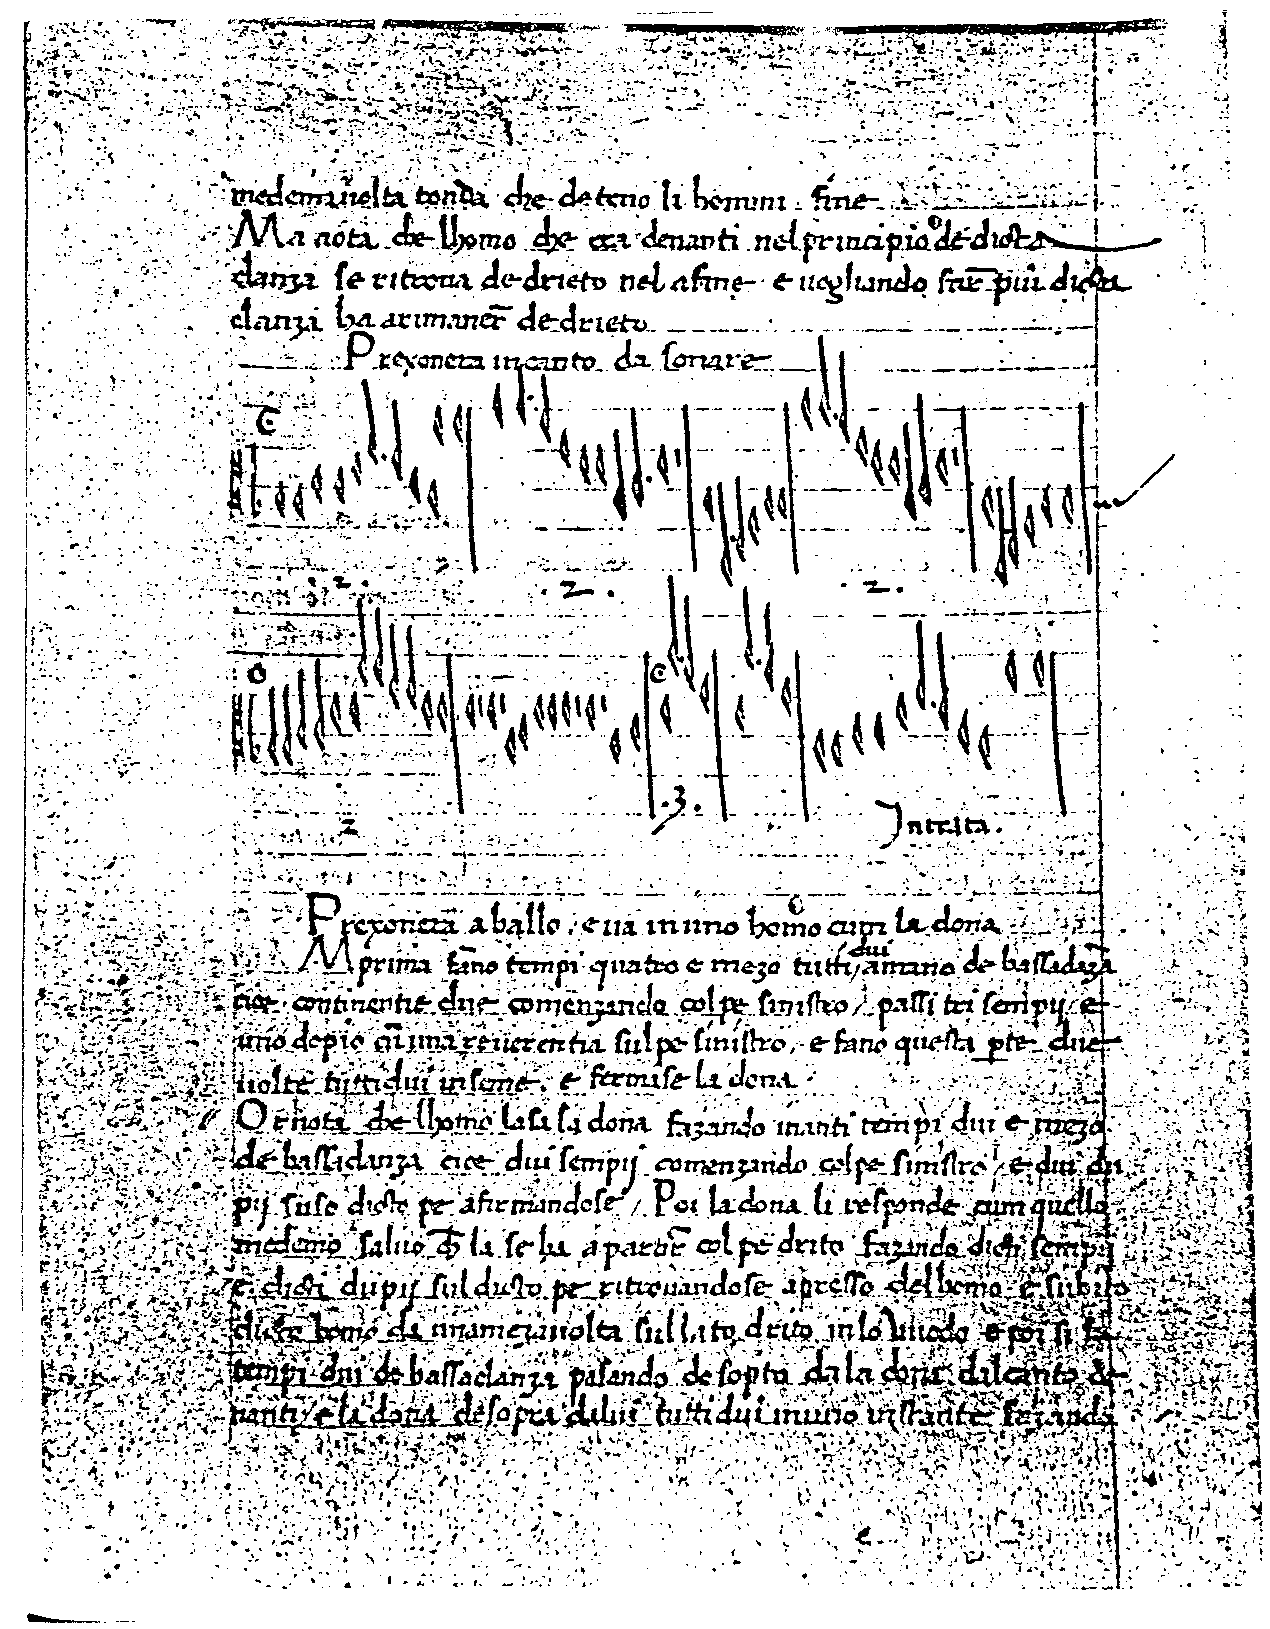 medema uolta tonda che deteno li homini. fine
Ma nota che lhomo che era denanti nel principio de dicta
danza se ritroua de drieto nel a fine e uogliando far̄ piu dicta
danza ha arimaner̄ de drieto
Prexonera in canto da sonare
C
.2. .2. .2.
O C
2 .3. Intrata.
Prexonera a ballo / e ua in uno homo cum la dona
M prima fano tempi quatro e mezo tutti dui / amano de bassadāza
cioe continentie due comenzando col pe sinistro / passi tri sempij e
uno dopio cū una reuerentia sul pe sinistro, e fano questa pte due
uolte tutti dui inseme. e fermase la dona.
Or nota che lhomo lasa la dona fazando inanti tempi dui e mezo
de bassadanza cioe dui sempij comenzando col pe sinistro / e dui du
pij suso dicto pe afirmandose / Poi la dona li responde cum quello
medemo saluo la se ha a partir̄ col pe drito fazando dicti sempij
e dicti dupij sul dicto pe ritrouandose apresso del homo e subito
homo da una meza uolta sul lato drito in lo e poi si fa
tempi dui de bassadanza pasando de sopra da la dona dal canto de
nanti / e la dona de sopra da lui tutti dui in uno instante fazando